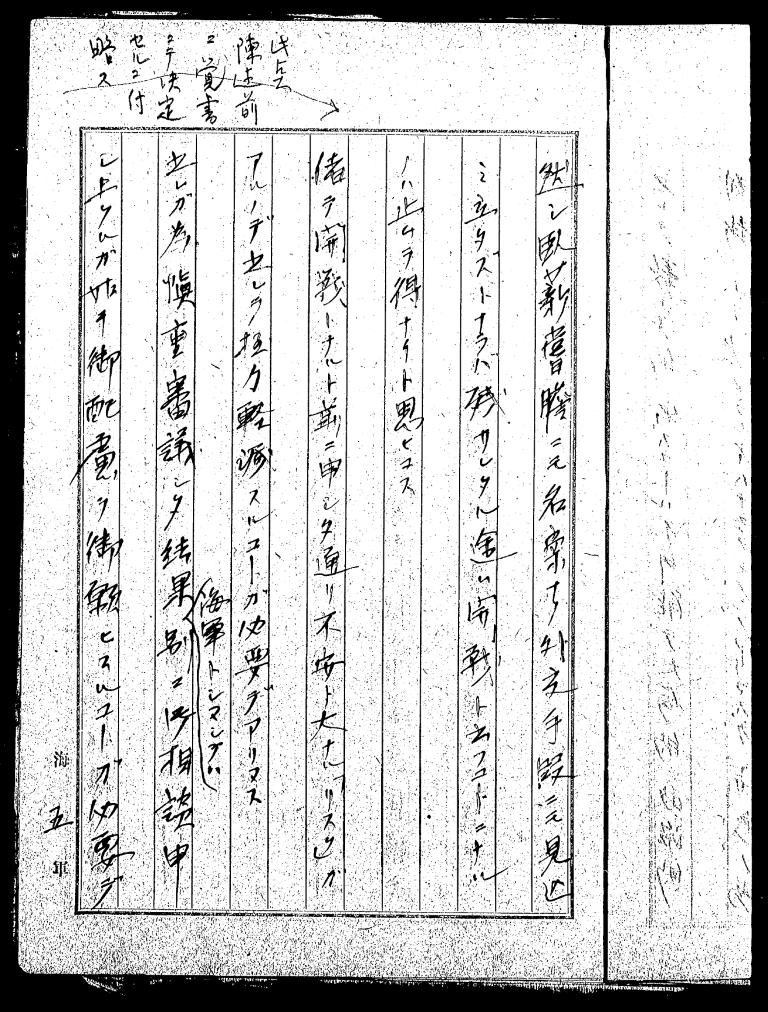 此点
陳述前
ニ覚書
ニテ決定
セルニ付
略ス
然シ臥薪嘗膽ニモ名案ナク外交手段ニモ見込
ミ立タズトナラバ残サレタル途ハ開戦ト云フコトニナル
ハ止ムヲ得ナイト思ヒマス
偖テ開戦トナルト前ニ申シタ通リ不安ト大ナル「リスク」ガ
アルノデ之レヲ極力軽減スルコトガ必要デアリマス
海軍トシマシテハ
之レガ為慎重審議シタ結果別ニ御相談申
シ上ゲルガ如キ御配慮ヲ御願ヒスルコトガ必要デ
海 五 軍